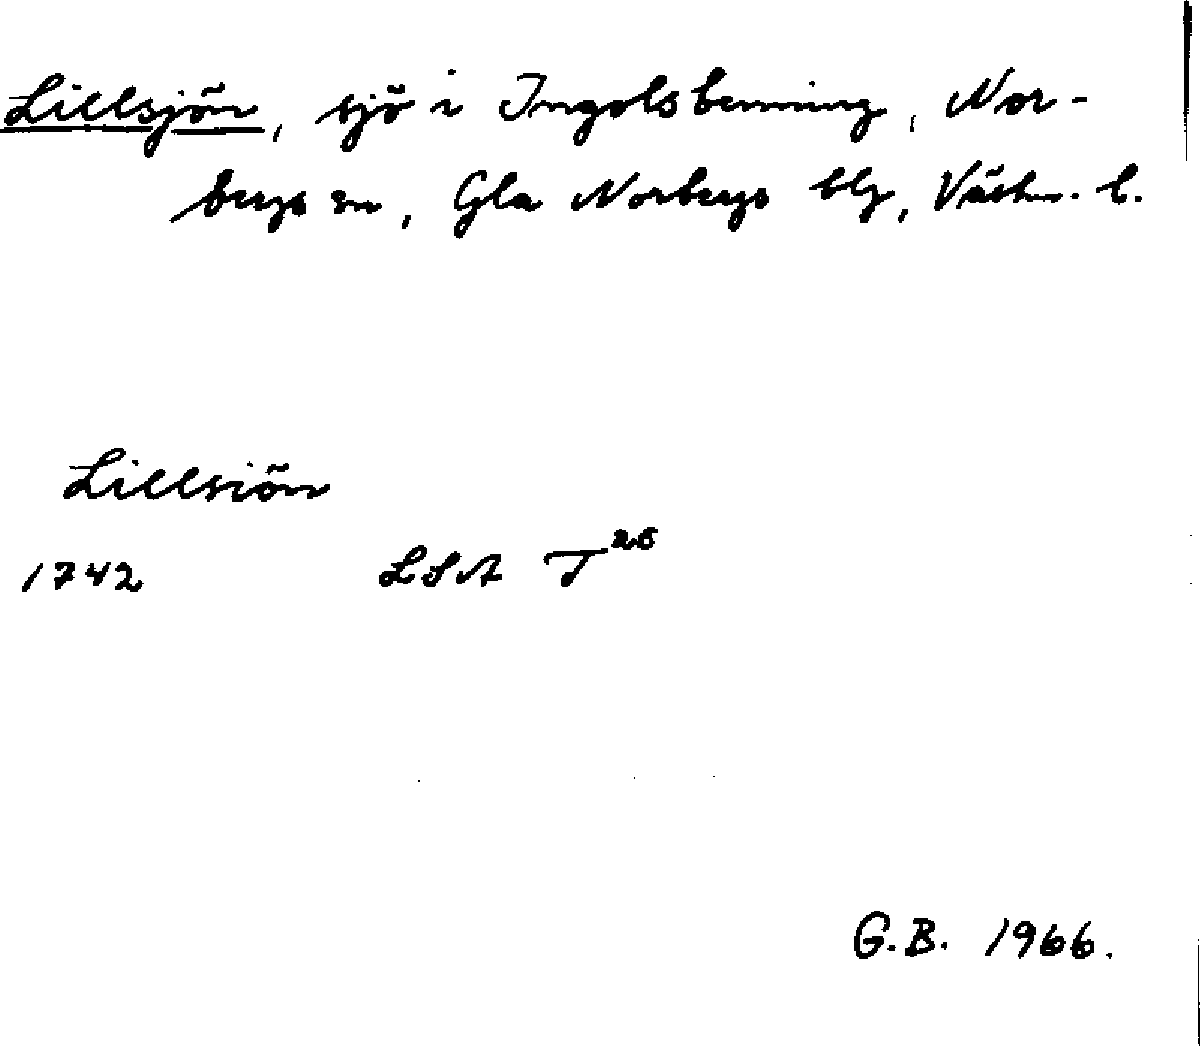 Lillsjön, sjö i Ingolsbenning, Nor-
bergs sn, Gla Norbergs blg, Västm. l.
Lillsiön
1742 LSA T 26
G.B. 1966.